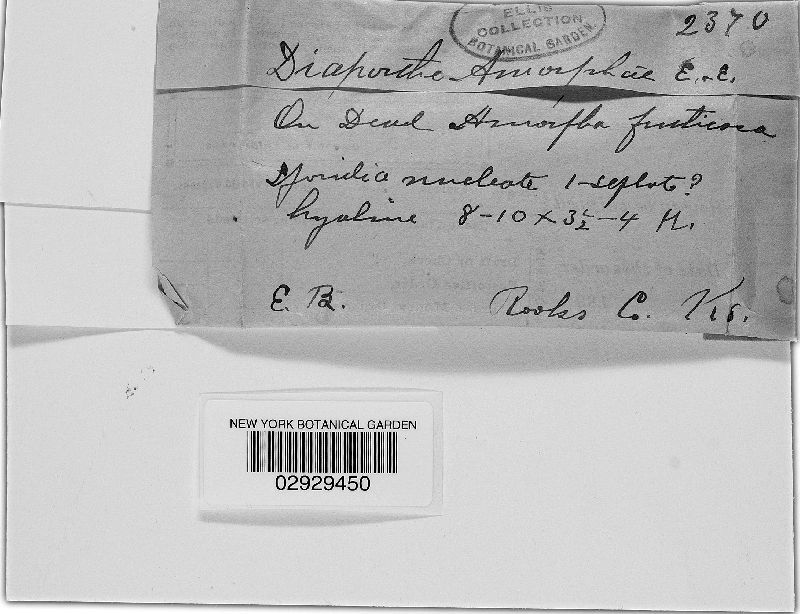 ELLIS
COLLECTION
BOTANICAL GARDEN.
2370
Diaporthe Amorphae E. & E.
On Dead Amorpha fruticosa
Sporidia nucleate 1-septate?
hyaline 8-10 x 3½-4 µ.
E. B. Rooks Co. Ks.
NEW YORK BOTANICAL GARDEN
02929450